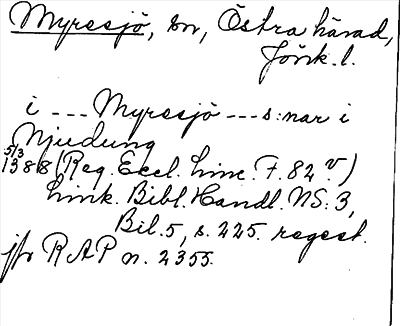 Myresjö, sn, Östra härad,
Jönk. l.
i --- Myresjö --- s:nar i
Njudung
5/3
1388 (Reg. Eccl. Linc. F. 82 v.)
Link. Bibl. Handl. NS: 3,
Bil. 5, s. 225. regest.
jfr RAP n. 2355.